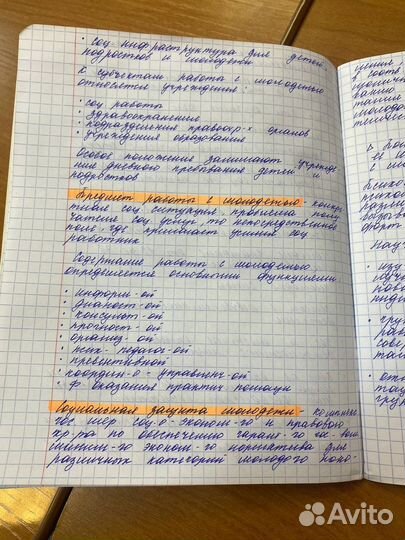 • соц инфраструктура для детей
подростков и молодежи
К субъектам работы с молодежью
относятся учреждения:
• соц работы
• здравоохранения
• подразделения правоохр-х органов
• учреждения образования
Особое положение занимают учрежде
ния дневного пребывания детей и
подростков
Предмет работы с молодежью - конкре
тная соц ситуация, проблема полу
чателя соц услуг, то непосредственное
поле, где прилагает усилия соц
работник
Содержание работы с молодежью
определяется основными функциями
• информ-ой
• диагност-ой
• консульт-ой
• прогност-ой
• организ-ой
• псих-педагог-ой
• превентивной
• координ-о-управленч-ой
• Ф оказания практич помощи
Социальная защита молодежи - комплекс
гос мер соц-о-эконом-го и правового
хр-ра по обеспечению гарант-го гос-вом
эконом-го норматива для
различных категорий молодого поко-
Avito